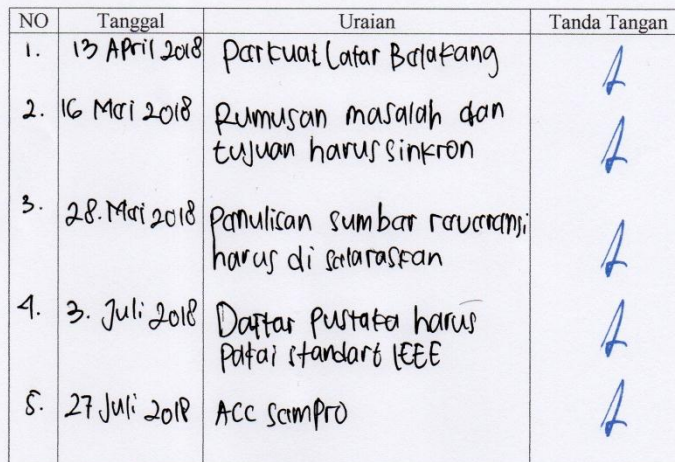 NO Tanggal Uraian Tanda Tangan
1. 13 April 2018 Perkuat Latar Belakang
2. 16 Mei 2018 Rumusan masalah dan
tujuan harus sinkron
3. 28. Mei 2018 Penulisan sumber referensi
harus di selaraskan
4. 3. Juli 2018 Daftar Pustaka harus
Pakai standart IEEE
5. 27 Juli 2018 ACC SemPro